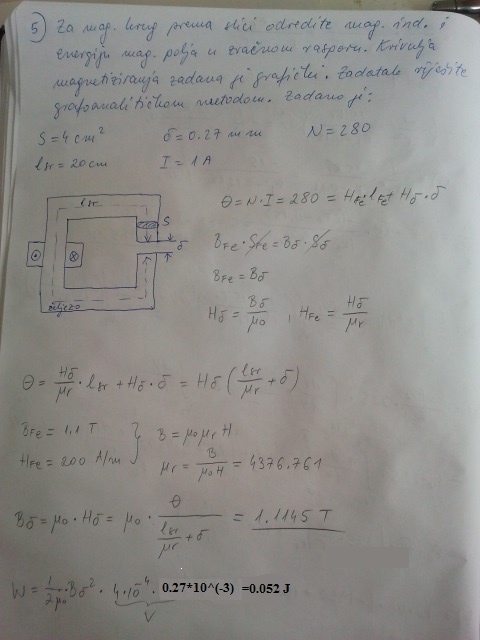 5) Za mag. krug prema slici odredite mag. ind. i
energiju mag. polja u zračnom rasporu. Krivulja
magnetiziranja zadana je grafički. Zadatak riješite
grafoanalitičkom metodom. Zadano je:
S=4cm² δ=0.27mm N=280
lsr=20cm I=1A
lsr
S
δ
željezo
Θ=N·I=280=HFe·lFe+Hδ·δ
BFe·SFe=Bδ·Sδ
BFe=Bδ
Hδ=Bδ/μo, HFe=Hδ/μr
Θ=Hδ/μr·lsr+Hδ·δ=Hδ(lsr/μr+δ)
BFe=1,1T } B=μoμrH
HFe=200 A/m } μr=B/μoH=4376.761
Bδ=μo·Hδ=μo·Θ/(lsr/μr+δ)=1.1145T
W=1/2μo·Bδ²·4·10^-4·0.27*10^(-3) =0.052 J
V